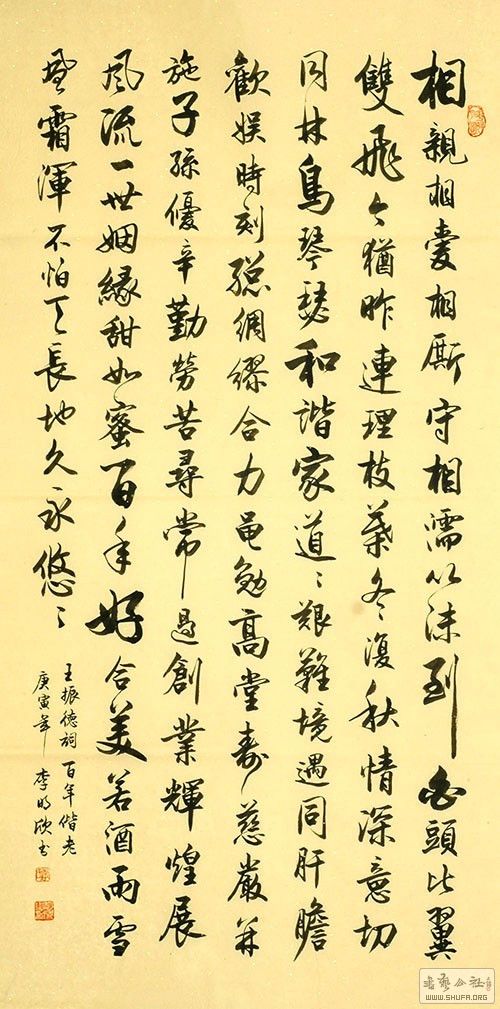 相親相愛相厮守相濡以沫到白頭比翼
雙飛今猶昨連理枝葉冬復秋情深意切
同林鳥琴瑟和諧家道〻艱難境遇同肝膽
歡娱時刻總綢繆合力黽勉高堂壽慈嚴并
施子孫優辛勤勞苦尋常過創業輝煌展
風流一世姻緣甜如蜜百年好合美若酒雨雪
風霜渾不怕天長地久永悠〻
王振德詞 百年偕老
庚寅年 李明欣書
書藝公社
WWW.SHUFA.ORG